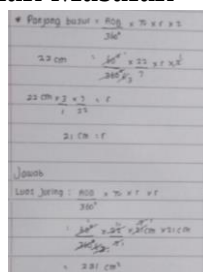 * Panjang busur = AOB/360° × π × r × 2
22 cm = 60°/360° × 22/7 × r × 2
22 cm × 3/1 × 7/22 = r
21 cm = r
Jawab
Luas juring : AOB/360° × π × r × r
= 60°/360° × 22/7 × 21 cm × 21 cm
= 231 cm²